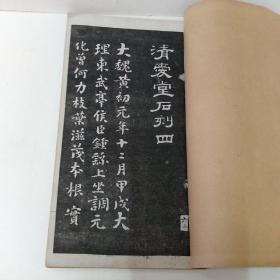 清爱堂石刻四
大魏黄初元年十二月甲戌大
理東武亭侯臣鍾繇上坐調元
化曾何力枝葉滋茂本根實